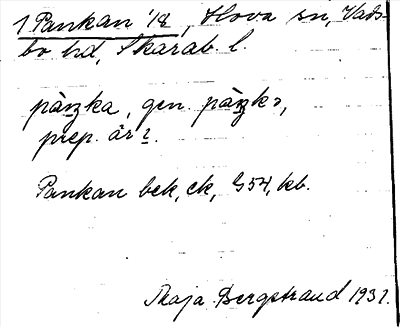 1 Pankan 1/8, Hova sn, Vads-
bo hd, Skarab. l.
pàŋka, gen. pàŋkə,
prep. är 2.
Pankan bek, ek, G54, kb.
Maja Bergstrand 1931.